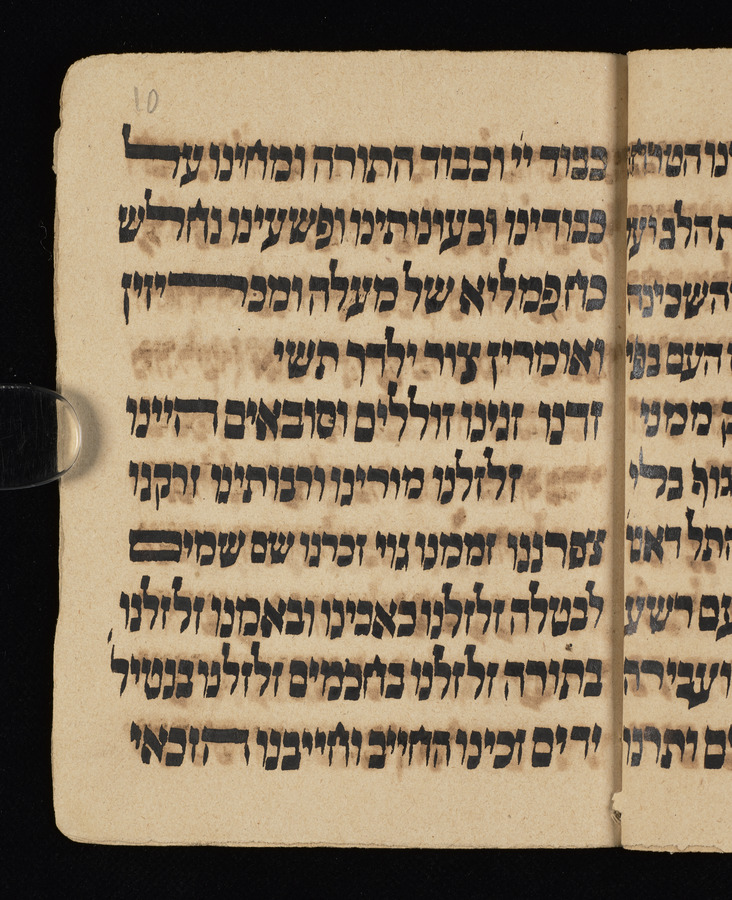 10
כבוד יי וכבוד התורה ומחינו על
כבודינו ובעונותינו ופשעינו נחלש
כח פמליא של מעלה ומכריזין
ואומרין צור ילדך תשי
זדנו זנינו זוללים וסובאים היינו
זלזלנו מורינו ורבותינו זרקנו
צפרננו זממנו גוי זכרנו שם שמים
לבטלה זלזלנו באבינו ובאמנו זלזלנו
בתורה זלזלנו בחכמים זלזלנו בנטיל
ידים זכינו החייב וחייבנו הזכאי
השכינה
העם בני
ממני
גוף בלי
עם רשע
ועבירה